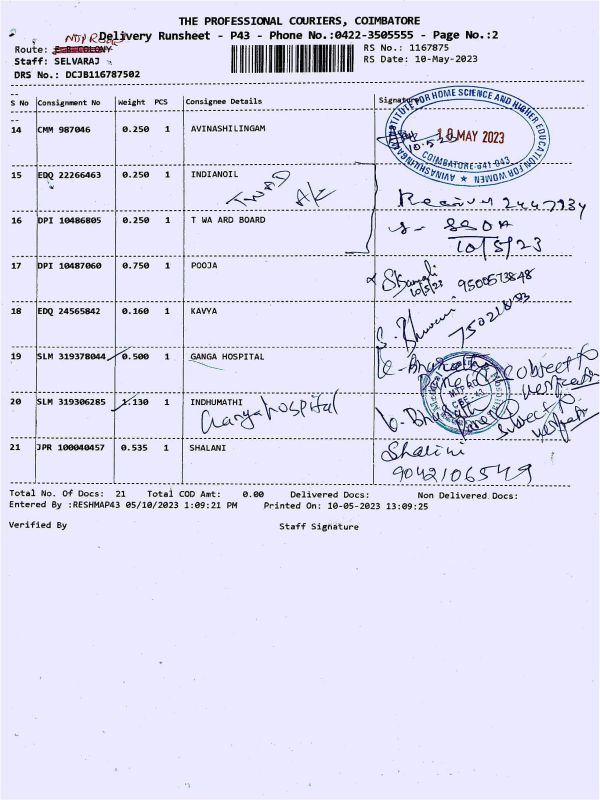 THE PROFESSIONAL COURIERS, COIMBATORE
Delivery Runsheet - P43 - Phone No.:0422-3505555 - Page No.:2
MTP Road
Route: E.B.COLONY
RS No.: 1167875
Staff: SELVARAJ
RS Date: 10-May-2023
DRS No.: DCJB116787502
S No Consignment No Weight PCS Consignee Details Signature
14 CMM 987046 0.250 1 AVINASHILINGAM
INSTITUTE FOR HOME SCIENCE AND HIGHER EDUCATION FOR WOMEN ★ AVINASHILINGAM
10 MAY 2023
10.5.23
COIMBATORE-641 043
15 EDQ 22266463 0.250 1 INDIANOIL
TWAD AK
Received 2447934
16 DPI 10486805 0.250 1 T WA ARD BOARD
10/5/23
17 DPI 10487060 0.750 1 POOJA
10/5/23 9500573848
18 EDQ 24565842 0.160 1 KAVYA
S. Bhuvani
19 SLM 319378044 0.500 1 GANGA HOSPITAL
subject to
verification
20 SLM 319306285 1.130 1 INDHUMATHI
Ganga hospital
MTP RD
CBE-43
subject to
21 JPR 100040457 0.535 1 SHALANI
Shalini
9042106549
Total No. Of Docs: 21 Total COD Amt: 0.00 Delivered Docs: Non Delivered Docs:
Entered By :RESHMAP43 05/10/2023 1:09:21 PM Printed On: 10-05-2023 13:09:25
Verified By Staff Signature